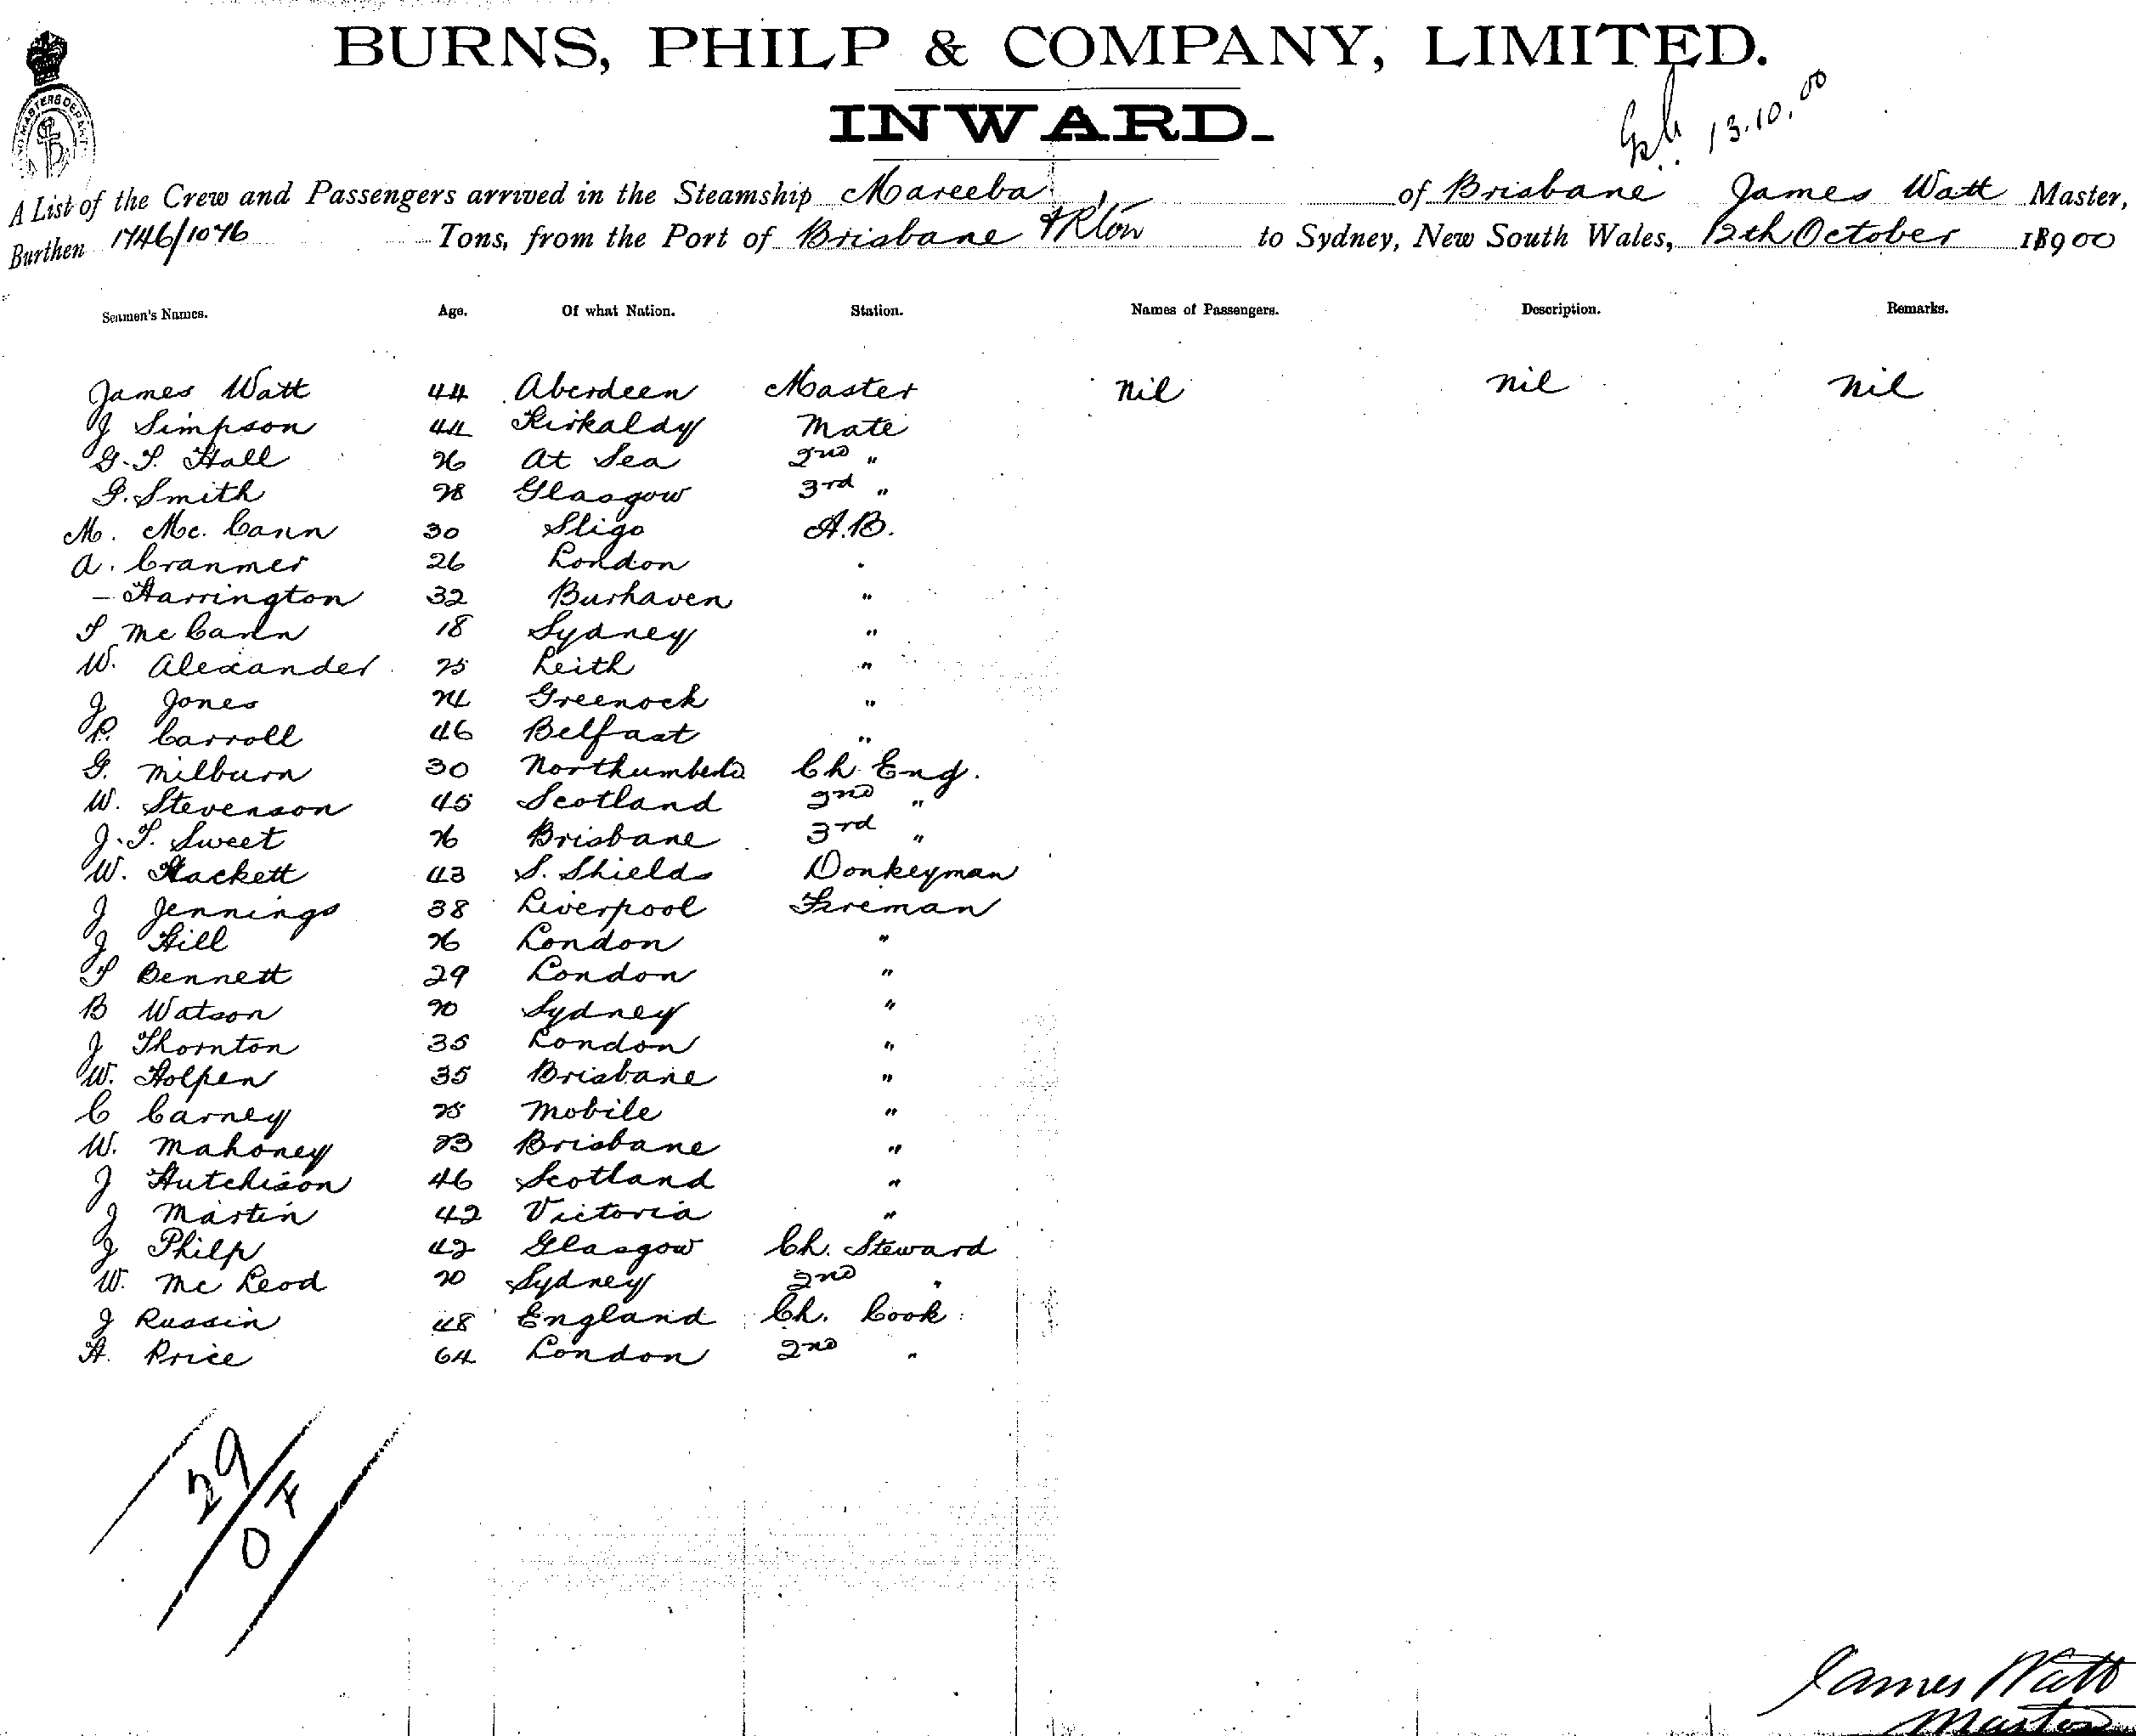 BURNS, PHILP & COMPANY, LIMITED.
INWARD.
13.10.00
A List of the Crew and Passengers arrived in the Steamship Mareeba of Brisbane James Watt Master,
Burthen 1746/1076 Tons, from the Port of Brisbane & R'ton to Sydney, New South Wales, 12th October 18900
Seamen's Names. Age. Of what Nation. Station. Names of Passengers. Description. Remarks.
James Watt 44 Aberdeen Master nil nil nil
J Simpson 44 Kirkaldy Mate
G. T. Hall 26 At Sea 2nd "
G. Smith 28 Glasgow 3rd "
M. Mc. Cann 30 Sligo A.B.
A. Cranmer 26 London "
— Harrington 32 Burhaven "
T Mc Cann 18 Sydney "
W. Alexander 25 Leith "
J Jones 24 Greenock "
P. Carroll 46 Belfast "
G. Milburn 30 Northumberld Ch. Eng.
W. Stevenson 45 Scotland 2nd "
J. T. Sweet 26 Brisbane 3rd "
W. Hackett 43 S. Shields Donkeyman
J Jennings 38 Liverpool Fireman
J Hill 26 London "
T Bennett 29 London "
B Watson 20 Sydney "
J Thornton 35 London "
W. Holpen 35 Brisbane "
C Carney 25 Mobile "
W. Mahoney 23 Brisbane "
J Hutchison 46 Scotland "
J Martin 42 Victoria "
J Philp 42 Glasgow Ch. Steward
W. Mc Leod 20 Sydney 2nd "
J Russin 48 England Ch. Cook
H. Price 64 London 2nd "
29
0
James Watt
Master